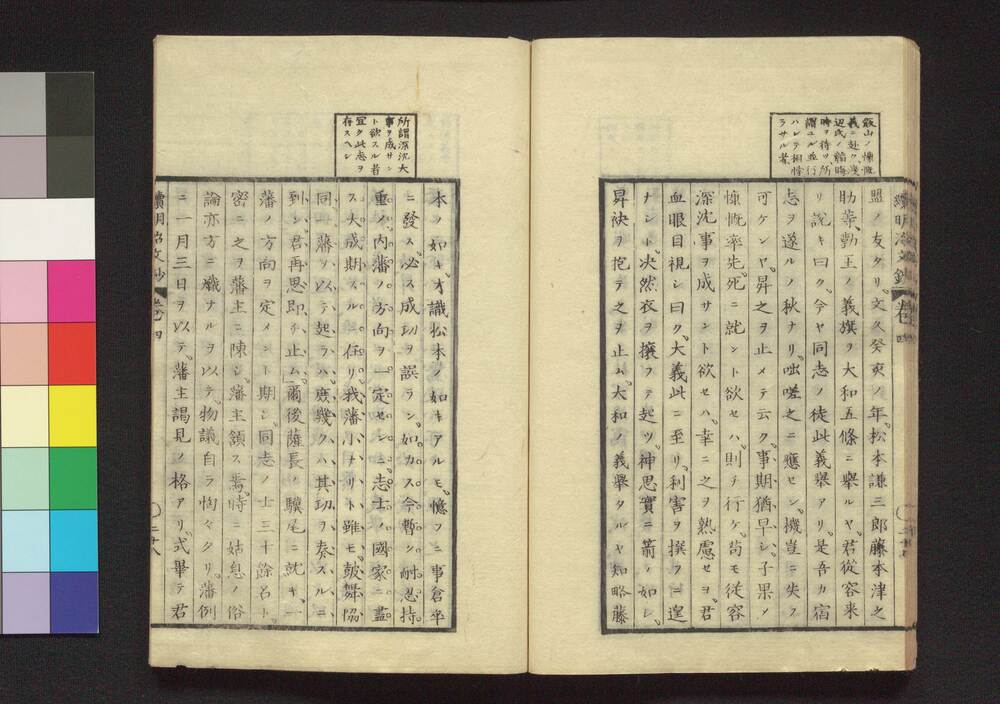 飯山ノ慷慨
義ニ赴ク、渡
辺氏ノ韜晦
時ヲ待ツ、所
謂ユル並行
ハレテ相悖
ラサル者、
續明治文鈔
卷四
盟ノ友タリ。文久癸亥ノ年。松本謙三郎藤本津之
助等、勤王ノ義旗ヲ大和五條ニ舉ルヤ。君從容来
リ説キ曰ク。今ヤ同志ノ徒此義舉アリ。是吾カ宿
志ヲ遂ルノ秋ナリ。咄嗟之ニ應セン。機豈ニ失フ
可ケンヤ。昇之ヲ止メテ云ク。事期猶早シ。子果ノ
慷慨率先。死ニ就ント欲セハ。則チ行ケ。苟モ從容
深沈事ヲ成サント欲セハ。幸ニ之ヲ熟慮セヨ。君
血眼目視シ曰ク。大義此ニ至リ。利害ヲ撰フニ遑
ナシト。决然衣ヲ攘フテ起ツ。神思實ニ箭ノ如シ。
昇袂ヲ抱テ之ヲ止ム。大和ノ義舉タルヤ知略藤
所謂深沈大
事ヲ成サン
ト欲スル者
宜ク此志ヲ
存スヘシ
本ノ如キ。才識松本ノ如キアルモ。憶フニ事倉卒
ニ發ス。必ス成功ヲ誤ラン。如カス今暫シ耐忍持
重シ。内藩ノ方向ヲ一定セシニ。志士ノ國家ニ盡
ス。大成期スルニ在リ。我藩小ナリト雖モ。鼓舞協
同一藩ヲ以テ起ラハ。庶幾クハ其功ヲ奏スルニ
到ン。君再思即チ止ム。爾後薩長ノ驥尾ニ就キ。一
藩ノ方向ヲ定メント期シ。同志ノ士三十餘名ト。
密ニ之ヲ藩主ニ陳シ。藩主頷ス焉。時ニ姑息ノ俗
論亦方ニ熾ナルヲ以テ。物議自ラ恟々タリ。藩例
ニ一月三日ヲ以テ。藩主謁見ノ格アリ。式畢テ君
續明治文鈔
卷四
二十八